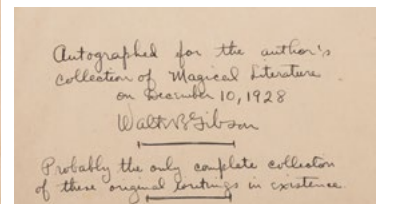 Autographed for the author's
collection of Magical Literature
on December 10, 1928
Walter B Gibson
Probably the only complete collection
of these original writings in existence.